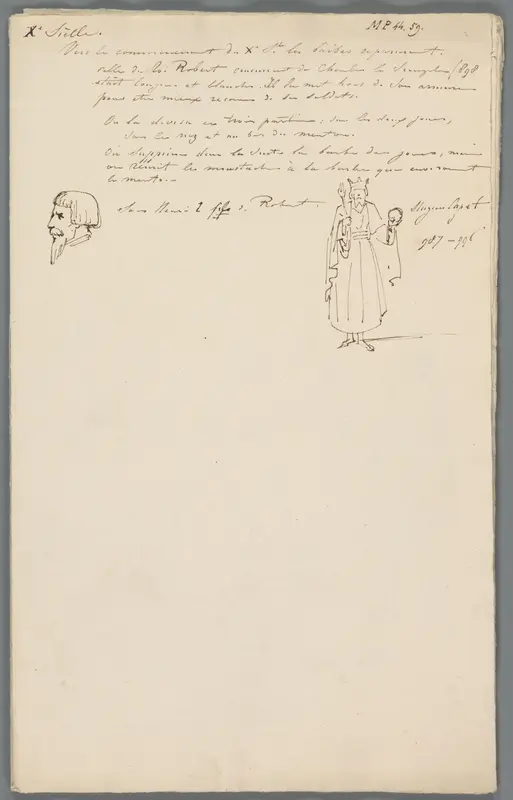 Xe Siècle.
M.P. 44. 59.
Vers le commencement du Xe Se les barbes reparurent.
celle de Robert concurrent de Charles le Simple (898
était longue et blanche. Il la mit hors de son armure
pour être mieux reconnu de ses soldats.
On la divisa en trois parties; sur les deux joues,
sur le nez et au bas du menton.
On supprima dans la suite la barbe des joues, mais
on réunit les moustaches à la barbe qui environnait
le menton.
Sous Henri I fils de Robert.
Hugues Capet
987 - 996